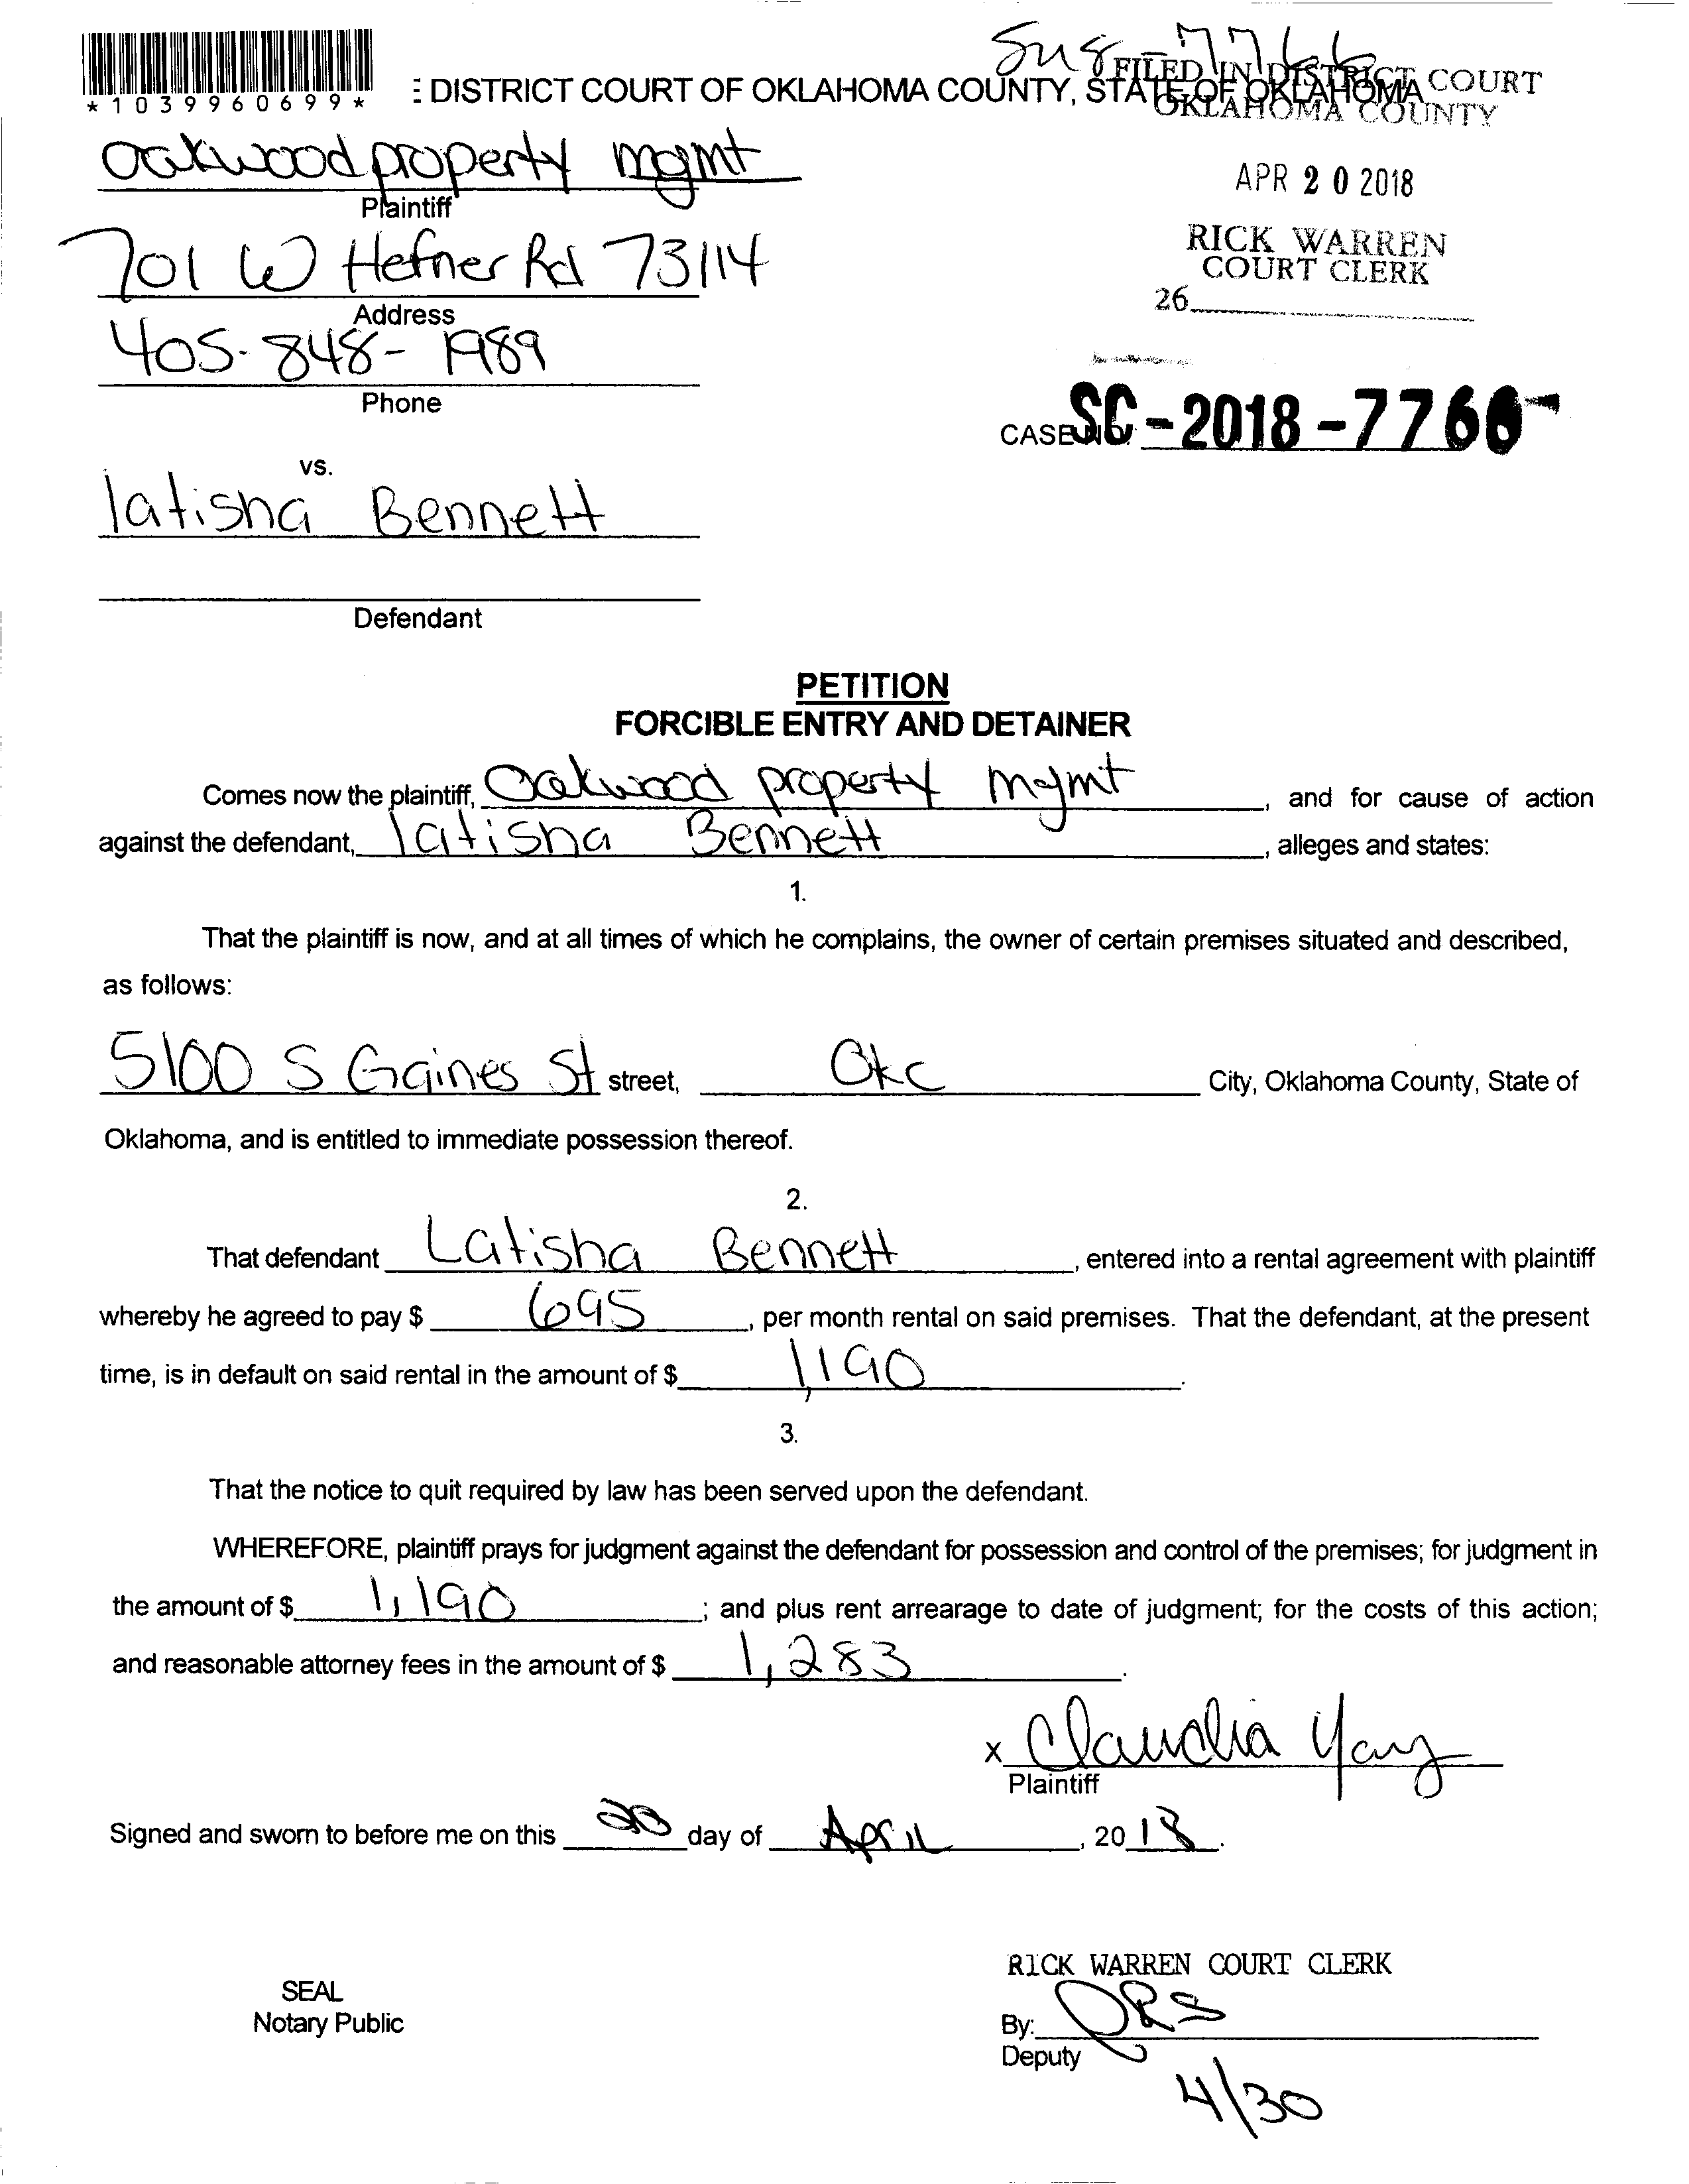 *1039960699*
DISTRICT COURT OF OKLAHOMA COUNTY, STATE OF OKLAHOMA
FILED IN DISTRICT COURT
OKLAHOMA COUNTY
oakwood property mgmt
Plaintiff
APR 20 2018
701 W Hefner Rd 73114
Address
RICK WARREN
COURT CLERK
26
405-848-1989
Phone
CASE NO. SC-2018-7766
vs.
latisha Bennett
Defendant
PETITION
FORCIBLE ENTRY AND DETAINER
Comes now the plaintiff, Oakwood property mgmt, and for cause of action
against the defendant, latisha Bennett, alleges and states:
1.
That the plaintiff is now, and at all times of which he complains, the owner of certain premises situated and described,
as follows:
5100 S Gaines St street, Okc City, Oklahoma County, State of
Oklahoma, and is entitled to immediate possession thereof.
2.
That defendant Latisha Bennett, entered into a rental agreement with plaintiff
whereby he agreed to pay $ 695, per month rental on said premises. That the defendant, at the present
time, is in default on said rental in the amount of $ 1,190.
3.
That the notice to quit required by law has been served upon the defendant.
WHEREFORE, plaintiff prays for judgment against the defendant for possession and control of the premises; for judgment in
the amount of $ 1,190; and plus rent arrearage to date of judgment; for the costs of this action;
and reasonable attorney fees in the amount of $ 1,283.
x Claudia
Plaintiff
Signed and sworn to before me on this 20 day of April, 2018.
RICK WARREN COURT CLERK
SEAL
Notary Public
By:
Deputy
4/30